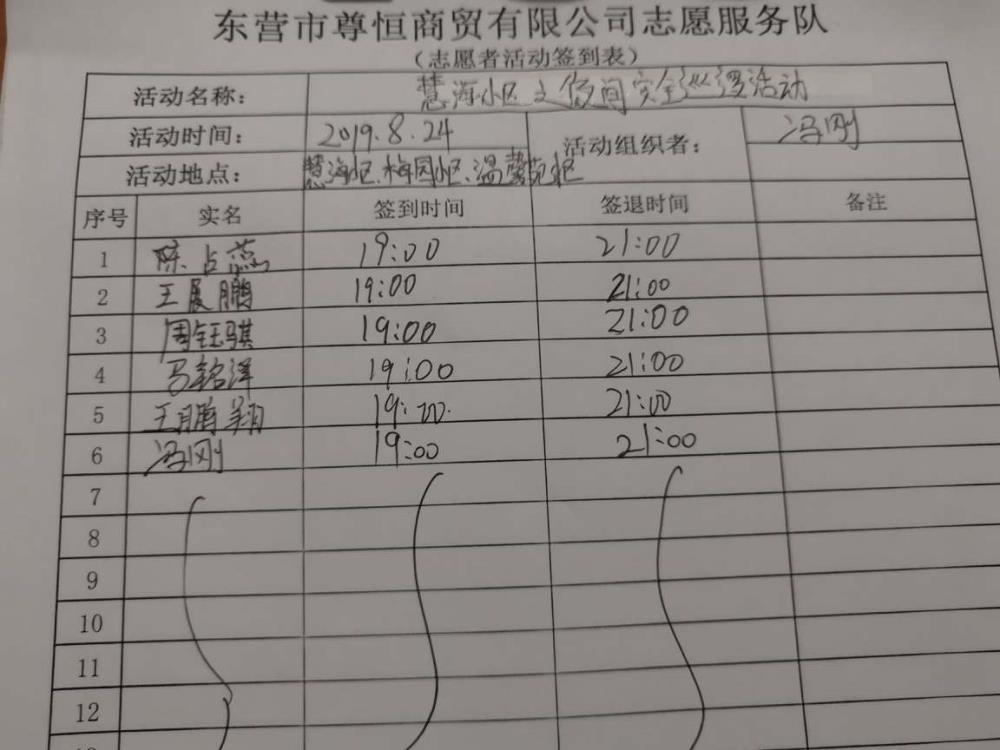 东营市尊恒商贸有限公司志愿服务队
（志愿者活动签到表）
活动名称： 慧海小区之夜间安全巡逻活动
活动时间： 2019.8.24 活动组织者： 冯刚
活动地点： 慧海小区、梅园小区、温馨苑小区
序号 实名 签到时间 签退时间 备注
1 陈占燕 19:00 21:00
2 王展鹏 19:00 21:00
3 周钰骐 19:00 21:00
4 马铭泽 19:00 21:00
5 王鹏翔 19:00 21:00
6 冯刚 19:00 21:00
7
8
9
10
11
12